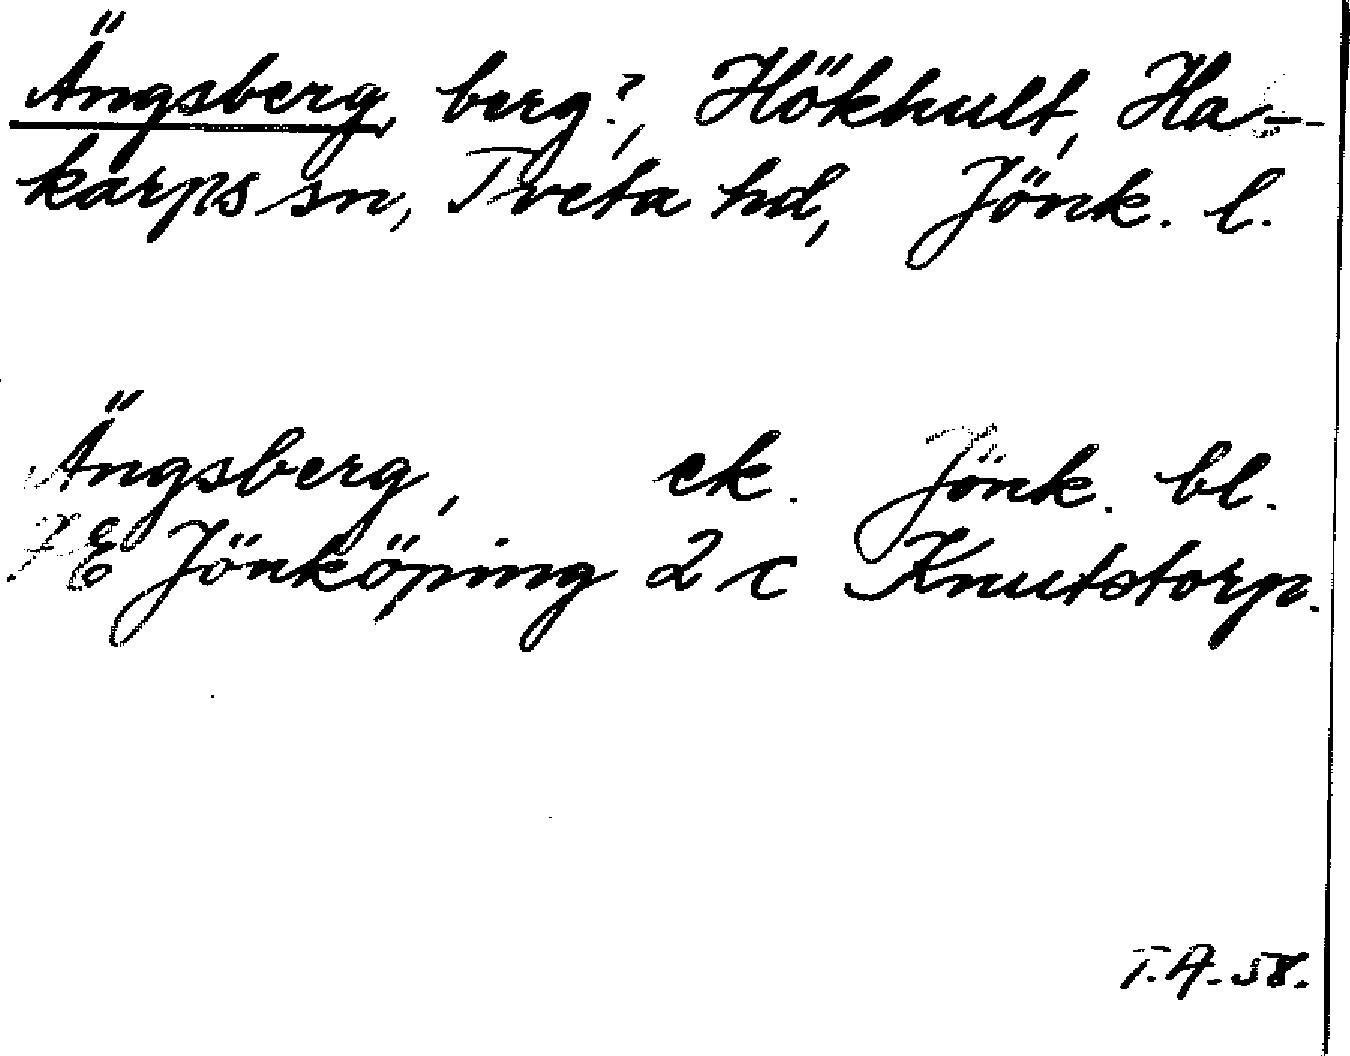 Ängsberg, berg?, Hökhult, Ha-
karps sn, Tveta hd, Jönk. l.
Ängsberg, ek. Jönk. bl.
7E Jönköping 2 c Knutstorp.
T.A. 58.